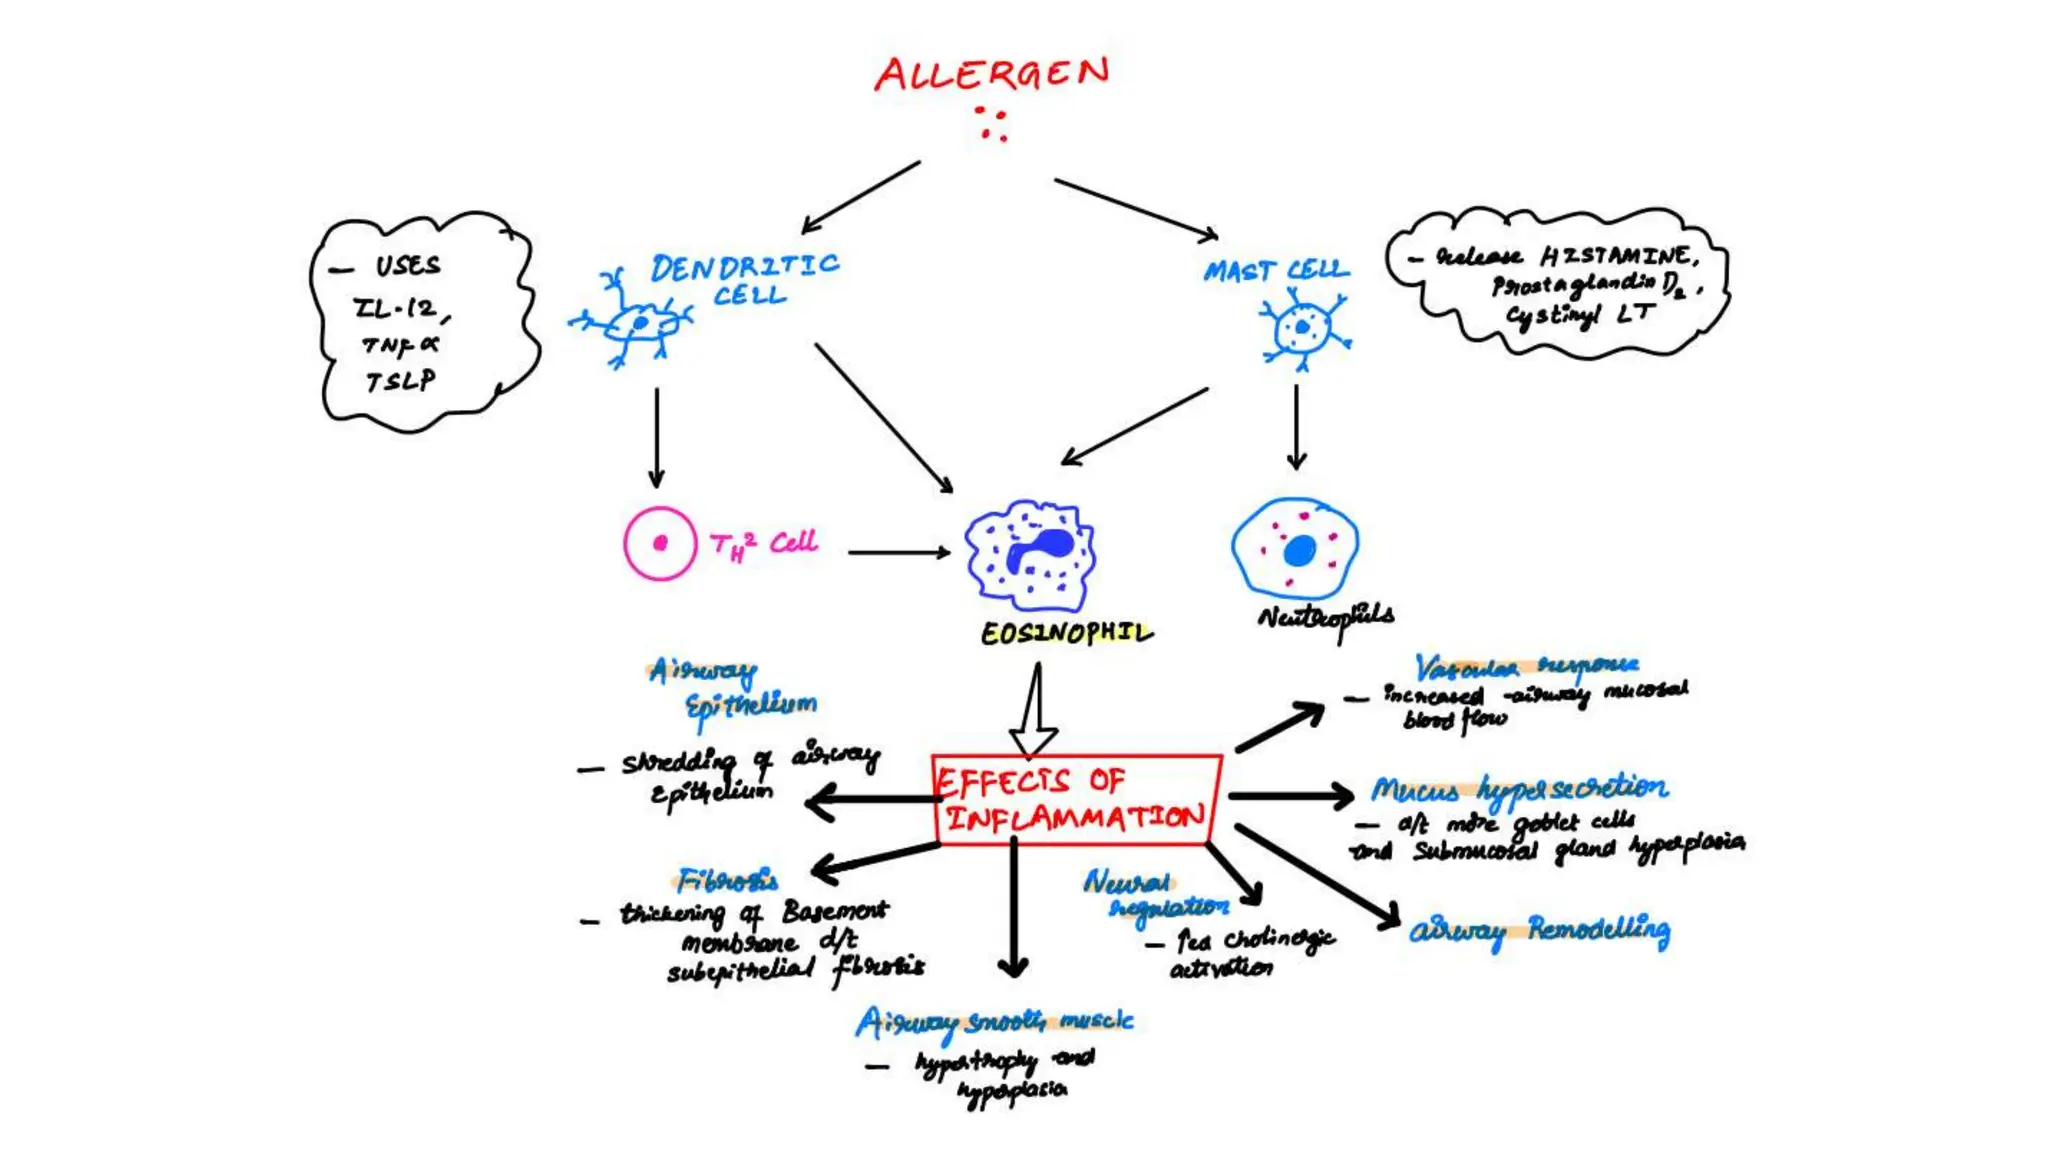 ALLERGEN
— USES
IL-12,
TNF α
TSLP
DENDRITIC
CELL
MAST CELL
— release HISTAMINE,
Prostaglandin D2,
Cystinyl LT
TH2 Cell
EOSINOPHIL
Neutrophils
Airway
Epithelium
— shredding of airway
Epithelium
EFFECTS OF
INFLAMMATION
Vascular response
— increased airway mucosal
blood flow
Mucus hypersecretion
— d/t more goblet cells
and submucosal gland hyperplasia
Fibrosis
— thickening of Basement
membrane d/t
subepithelial fibrosis
Neural
regulation
— ↑ed cholinergic
activation
airway Remodelling
Airway smooth muscle
— hypertrophy and
hyperplasia